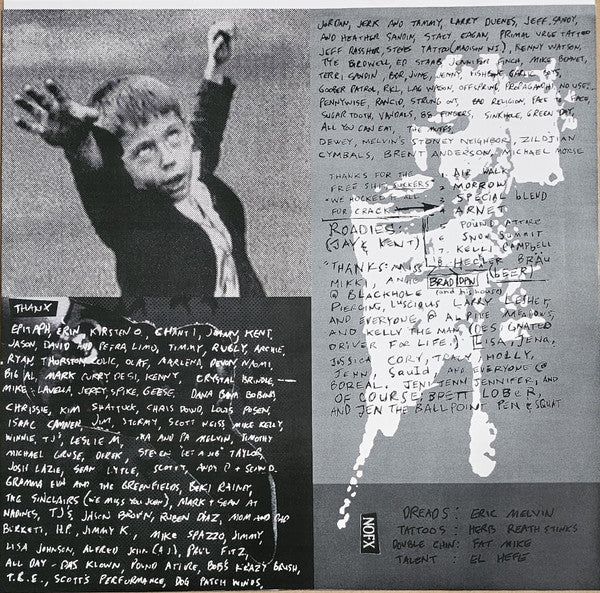 JORDAN, JERK AND TAMMY, LARRY DUENES, JEFF, SANDY,
AND HEATHER SANDIN, STACY EAGAN, PRIMAL URGE TATTOO
JEFF RASSHER, STEVES TATTOO (MADISON WI), KENNY WATSON,
TYE BIRDWELL, ED STARR, JENNIFER FINCH, MIKE BENNET,
TERRI SANDIN, BOB, JUNE, JENNY, FISHBONE, GARLIC
GOOBER PATROL, RKL, LAG WAGON, OFFSPRING, PROPAGANDHI, NO USE..
PENNYWISE, RANCID, STRUNG OUT, BAD RELIGION, FACE
SUGAR TOOTH, VANDALS, BS FINGERS, SINKHOLE, GREEN DAY,
ALL YOU CAN EAT, THE MUFFS
DEWEY, MELVIN'S STONEY NEIGHBOR, ZILDJIAN
CYMBALS, BRENT ANDERSON, MICHAEL MORSE
THANKS FOR THE
FREE SHIT SUCKERS
"WE HOCKED IT ALL
FOR CRACK
1 AIR WALK
2 MORROW
3 SPECIAL BLEND
4 ARNET
5 POUND ATTIRE
6 SNOW SUMMIT
7 KELLI CAMPBELL
8 HECKLER BRÄU
(BEER)
ROADIES:
(JAY & KENT)
"THANKS: MISS
MIKKI, BRAD DAN
@ BLACKHOLE
PIERCING, LUSCIOUS LARRY LESHER,
AND EVERYONE @ ALPINE MEADOWS,
AND KELLY THE MAN (DESIGNATED
DRIVER FOR LIFE.) LISA, JENA,
JESSICA CORY, TRACY, HOLLY,
JENN AND EVERYONE @
BOREAL. JENI JENN JENNIFER, AND
OF COURSE, BRETT LOBER,
AND JEN THE BALLPOINT PEN & SQUAT
THANX
EPITAPH, ERIN, KIRSTEN O, CHANTI, JOHNNY, KENT,
JASON, DAVID AND PETRA LIMO, TIMMY, RUGLY, ARCHIE,
RYAN THORSTON, OLAF, MARLENA, DEWEY, NAOMI,
BIG AL MARK CURRY DESI, KENNY, CRYSTAL
MIKE LAVELLA, JERRY, SPIKE, GEESE, DANA
CHRISSIE, KIM SHATTUCK, CHRIS DOWD, LOUIS POSEN,
ISAAC CAMNER, JIM, STORMY, SCOTT WEISS, MIKE KELLY,
WINNIE, TJ'S, LESLIE M, MA AND PA MELVIN, TIMOTHY
MICHAEL GRUSE, DEREK, STEVEN "GET A JOB" TAYLOR,
JOSH LAZIE, SEAN LYTLE, SCOTTY, ANDY P
GRAMMA EVA AND THE GREENFIELDS, BERI RAINY,
THE SINCLAIRS (WE MISS YOU JOHN), MARK & SEAN AT
NADINES, TJ'S JASON BROWN, RUBEN DIAZ, MOM AND POP
BURKETT, H.P., JIMMY K., MIKE SPAZZO, JIMMY,
LISA JOHNSON, ALFRED (AJ), PAUL FITZ,
ALL DAY - DAS KLOWN, POUND ATTIRE, BOB'S KRAZY BRUSH,
T.B.E., SCOTT'S PERFORMANCE, DOG PATCH WINOS,
NOFX
DREADS: ERIC MELVIN
TATTOOS: HERB REATH STINKS
DOUBLE CHIN: FAT MIKE
TALENT: EL HEFE